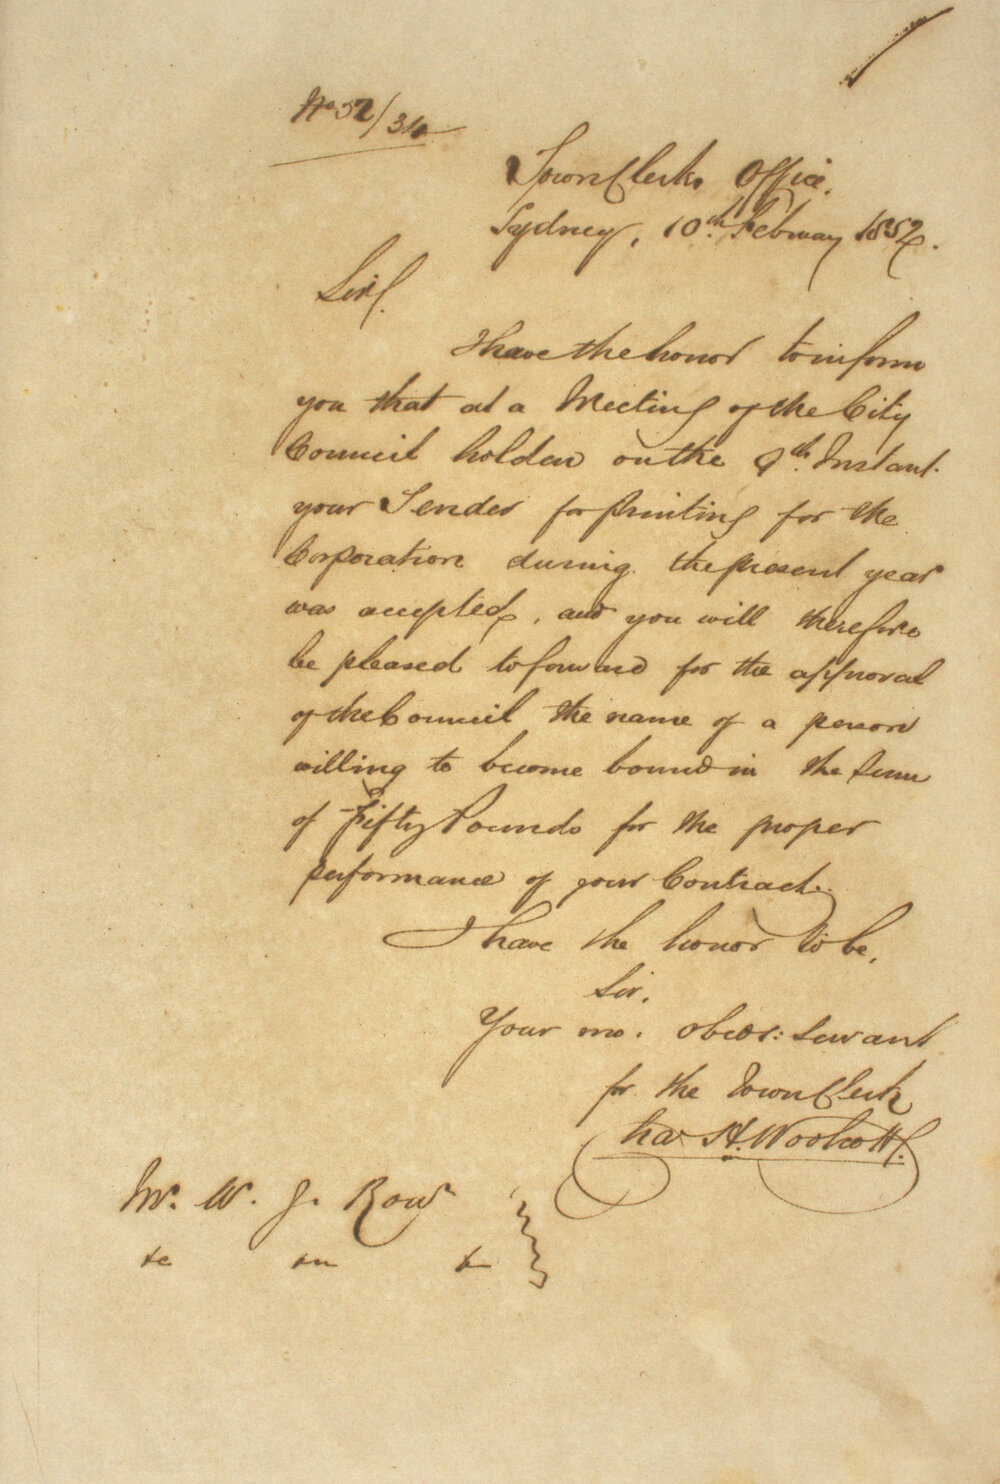 No 52/34
Town Clerks Office.
Sydney, 10th February 1852.
Sir,
I have the honor to inform
you that at a Meeting of the City
Council holden on the 9th Instant.
your Tender for printing for the
Corporation during the present year
was accepted, and you will therefore
be pleased to forward for the approval
of the Council the name of a person
willing to become bound in the sum
of Fifty Pounds for the proper
performance of your Contract.
I have the honor to be,
Sir,
Your mo. obedt: Servant
for the Town Clerk
Chas H. Woolcott.
Mr. W. J. Row
&c &c &c